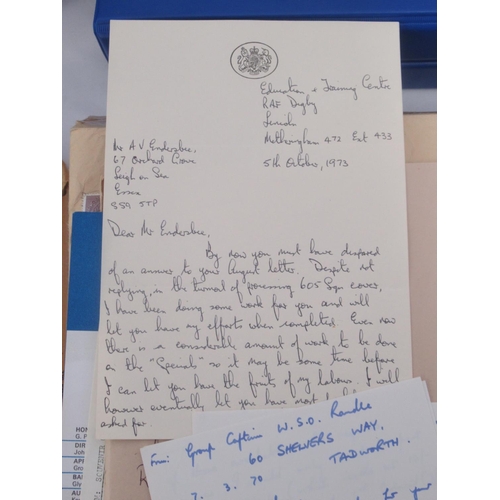 Education & Training Centre
RAF Digby
Lincoln
Metheringham 472 Ext 433
5th October, 1973
Mr A V Endersbee,
67 Orchard Grove
Leigh on Sea
Essex
SS9 5TP
Dear Mr Endersbee,
By now you must have despaired
of an answer to your August letter. Despite not
replying, in the turmoil of processing 605 Sqn cover,
I have been doing some work for you and will
let you have my efforts when completed. Even now
there is a considerable amount of work to be done
on the "Specials" so it may be some time before
I can let you have the fruits of my labour. I will
however eventually let you have most
asked for.
From: Group Captain W.S.O. Randle
60 SHELVERS WAY,
TADWORTH.
7. 3. 70
for your